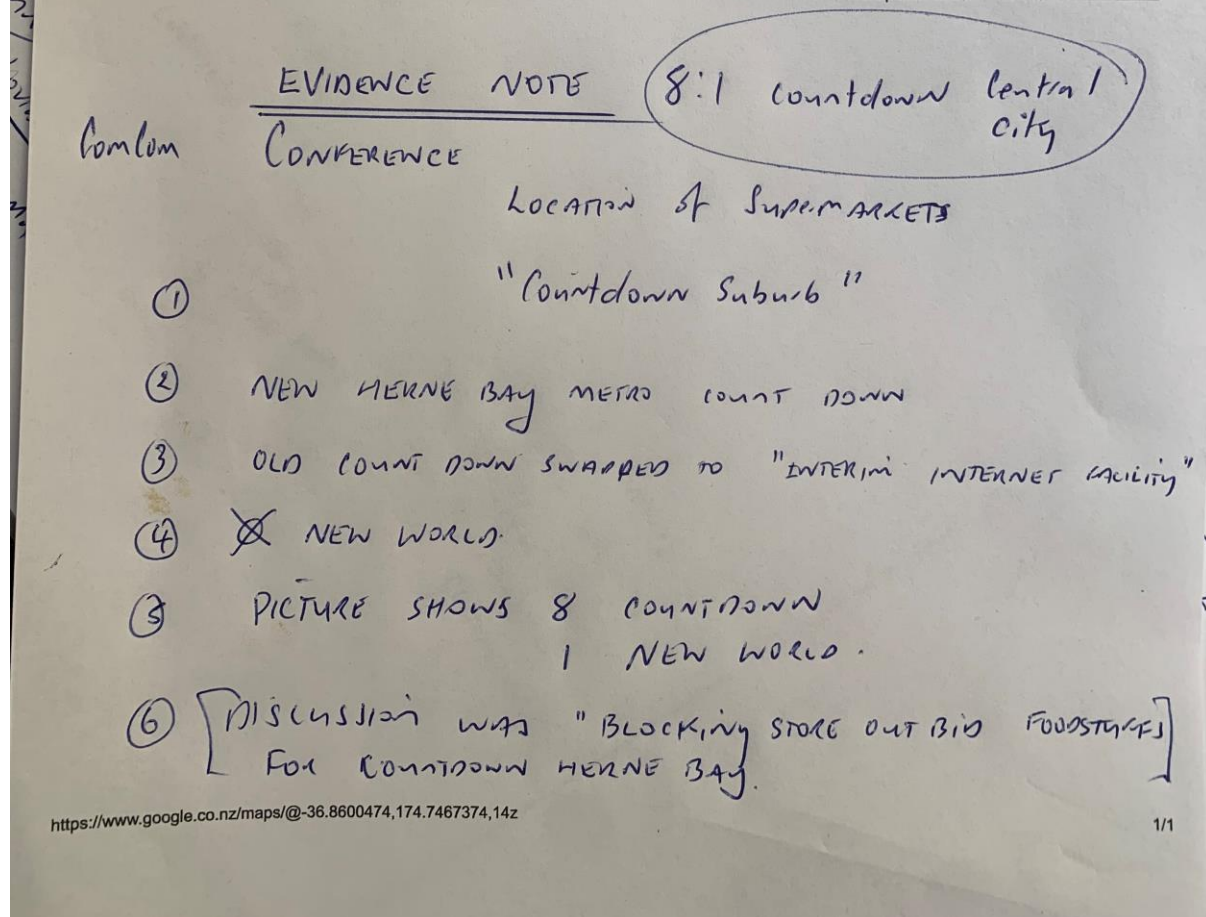 EVIDENCE NOTE
8:1 Countdown Central
city
ComCom CONFERENCE
LOCATION of SUPERMARKETS
① "Countdown Suburb"
② NEW HERNE BAY METRO COUNT DOWN
③ OLD COUNT DOWN SWAPPED TO "INTERIM INTERNET FACILITY"
④ NEW WORLD.
⑤ PICTURE SHOWS 8 COUNTDOWN
1 NEW WORLD.
⑥ [DISCUSSION WAS "BLOCKING STORE OUT BID FOODSTUFFS]
FOR COUNTDOWN HERNE BAY.
https://www.google.co.nz/maps/@-36.8600474,174.7467374,14z
1/1